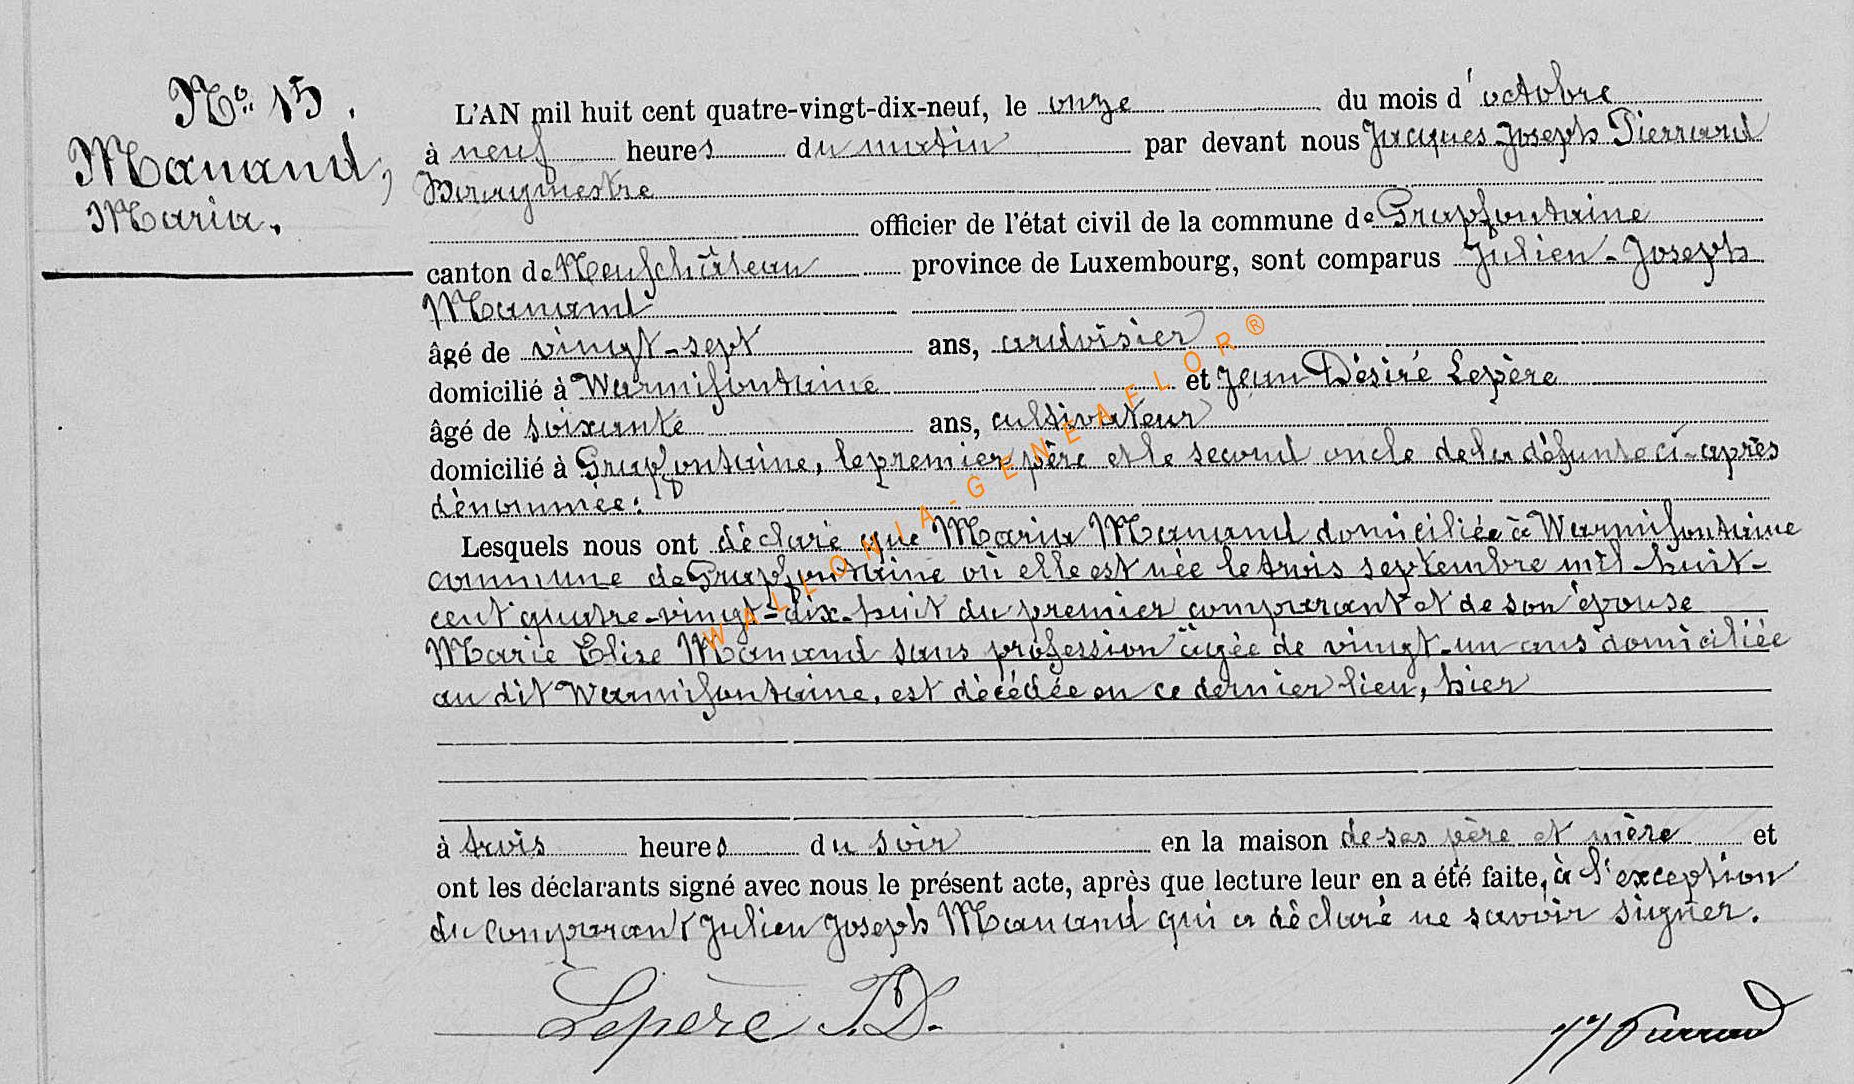 No. 15.
Manand,
Maria.
L'AN mil huit cent quatre-vingt-dix-neuf, le onze du mois d'octobre
à neuf heures du matin par devant nous Jacques Joseph Pierrard
Bourgmestre
officier de l'état civil de la commune de Grapfontaine
canton de Neufchâteau province de Luxembourg, sont comparus Julien-Joseph
Manand
âgé de vingt-sept ans, ardoisier
domicilié à Warmifontaine et Jean Désiré Lepère
âgé de soixante ans, cultivateur
domicilié à Grapfontaine, le premier père et le second oncle de la défunte ci-après
dénommée:
Lesquels nous ont déclaré que Maria Manand domiciliée à Warmifontaine
commune de Grapfontaine où elle est née le trois septembre mil-huit-
cent quatre-vingt-dix-huit du premier comparant et de son épouse
Marie Elise Manand sans profession âgée de vingt-un ans domiciliée
au dit Warmifontaine, est décédée en ce dernier lieu, hier
à trois heures du soir en la maison de ses père et mère et
ont les déclarants signé avec nous le présent acte, après que lecture leur en a été faite, à l'exception
du comparant Julien Joseph Manand qui a déclaré ne savoir signer.
Lepère J.D.
JJ Pierrard
WALLONIA-GENEAFLOR®